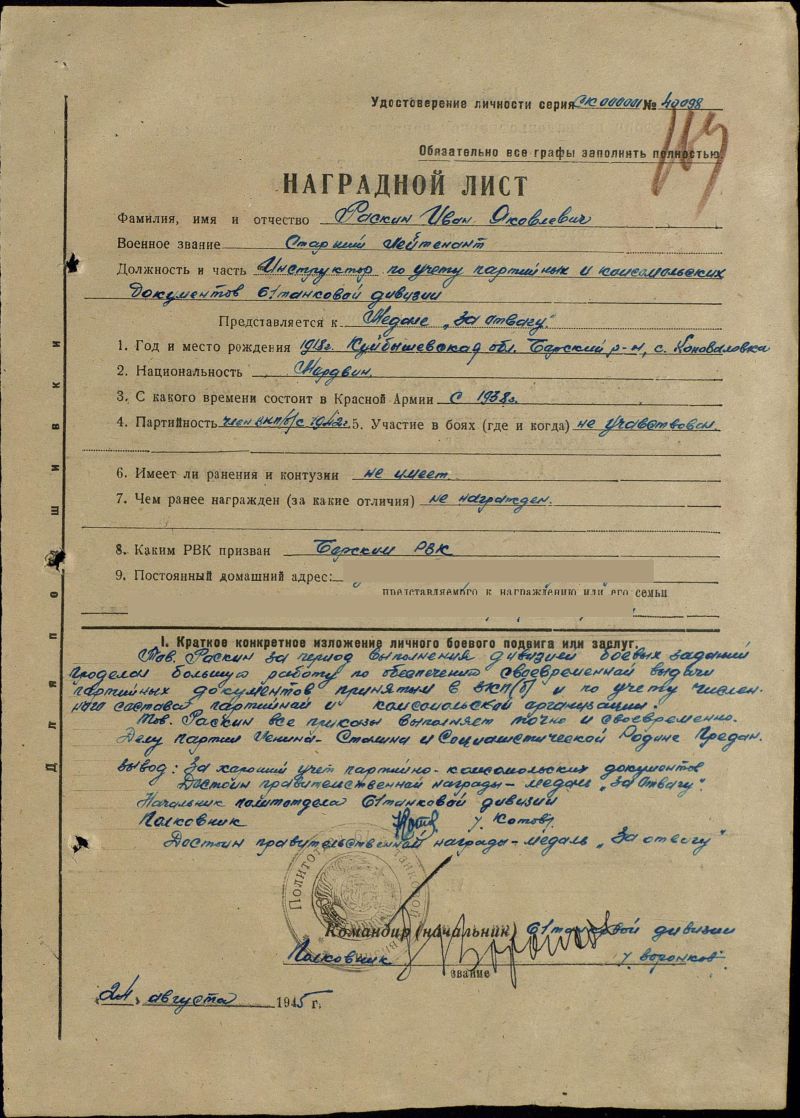 Удостоверение личности серия СК 000001 № 40098
169
Обязательно все графы заполнить полностью.
НАГРАДНОЙ ЛИСТ
Фамилия, имя и отчество Раскин Иван Яковлевич
Военное звание Старший Лейтенант
Должность и часть Инструктор по учету партийных и комсомольских
документов 61 танковой дивизии
Представляется к Медале „За отвагу".
1. Год и место рождения 1918г. Куйбышевская обл. Борский р-н, с. Коноваловка
2. Национальность Мордвин.
3. С какого времени состоит в Красной Армии с 1938г.
4. Партийность член ВКП/б/ с 1942г. 5. Участие в боях (где и когда) не учавствовал.
6. Имеет ли ранения и контузии не имеет
7. Чем ранее награжден (за какие отличия) не награжден.
8. Каким РВК призван Борским РВК
9. Постоянный домашний адрес:
представляемого к награждению или его семьи
I. Краткое конкретное изложение личного боевого подвига или заслуг.
Тов. Раскин за период выполнения дивизией боевых заданий
проделал большую работу по обеспечению своевременной выдачи
партийных документов принятым в ВКП(б) и по учету числен-
ного состава партийной и комсомольской организации.
Тов. Раскин все приказы выполняет точно и своевременно.
Делу партии Ленина-Сталина и Социалистической Родине предан.
Вывод: За хороший учет партийно-комсомольских документов
Достоин правительственной награды - медаль „За Отвагу".
Начальник политотдела 61 танковой дивизии
Полковник /Котов/
Достоин правительственной награды - медаль „За отвагу"
Командир (начальник) 61 танковой дивизии
Полковник / Воронков
звание
24 августа 1945 г.
Для подшивки